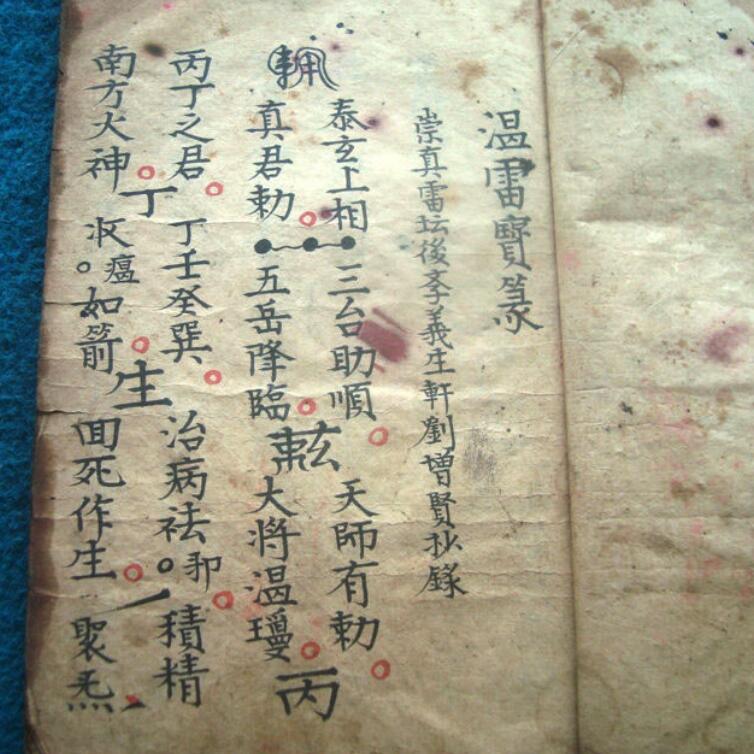 温雷寶篆
崇真雷坛後斈義庄軒劉增賢抄錄
泰玄上相 三台助順 天師有勅
丙
真君勅 五岳降臨 大将温瓊
丙丁之君 丁壬癸巽 治病祛邪 積精
丁 生 一
南方火神 収瘟如箭 回死作生 聚炁